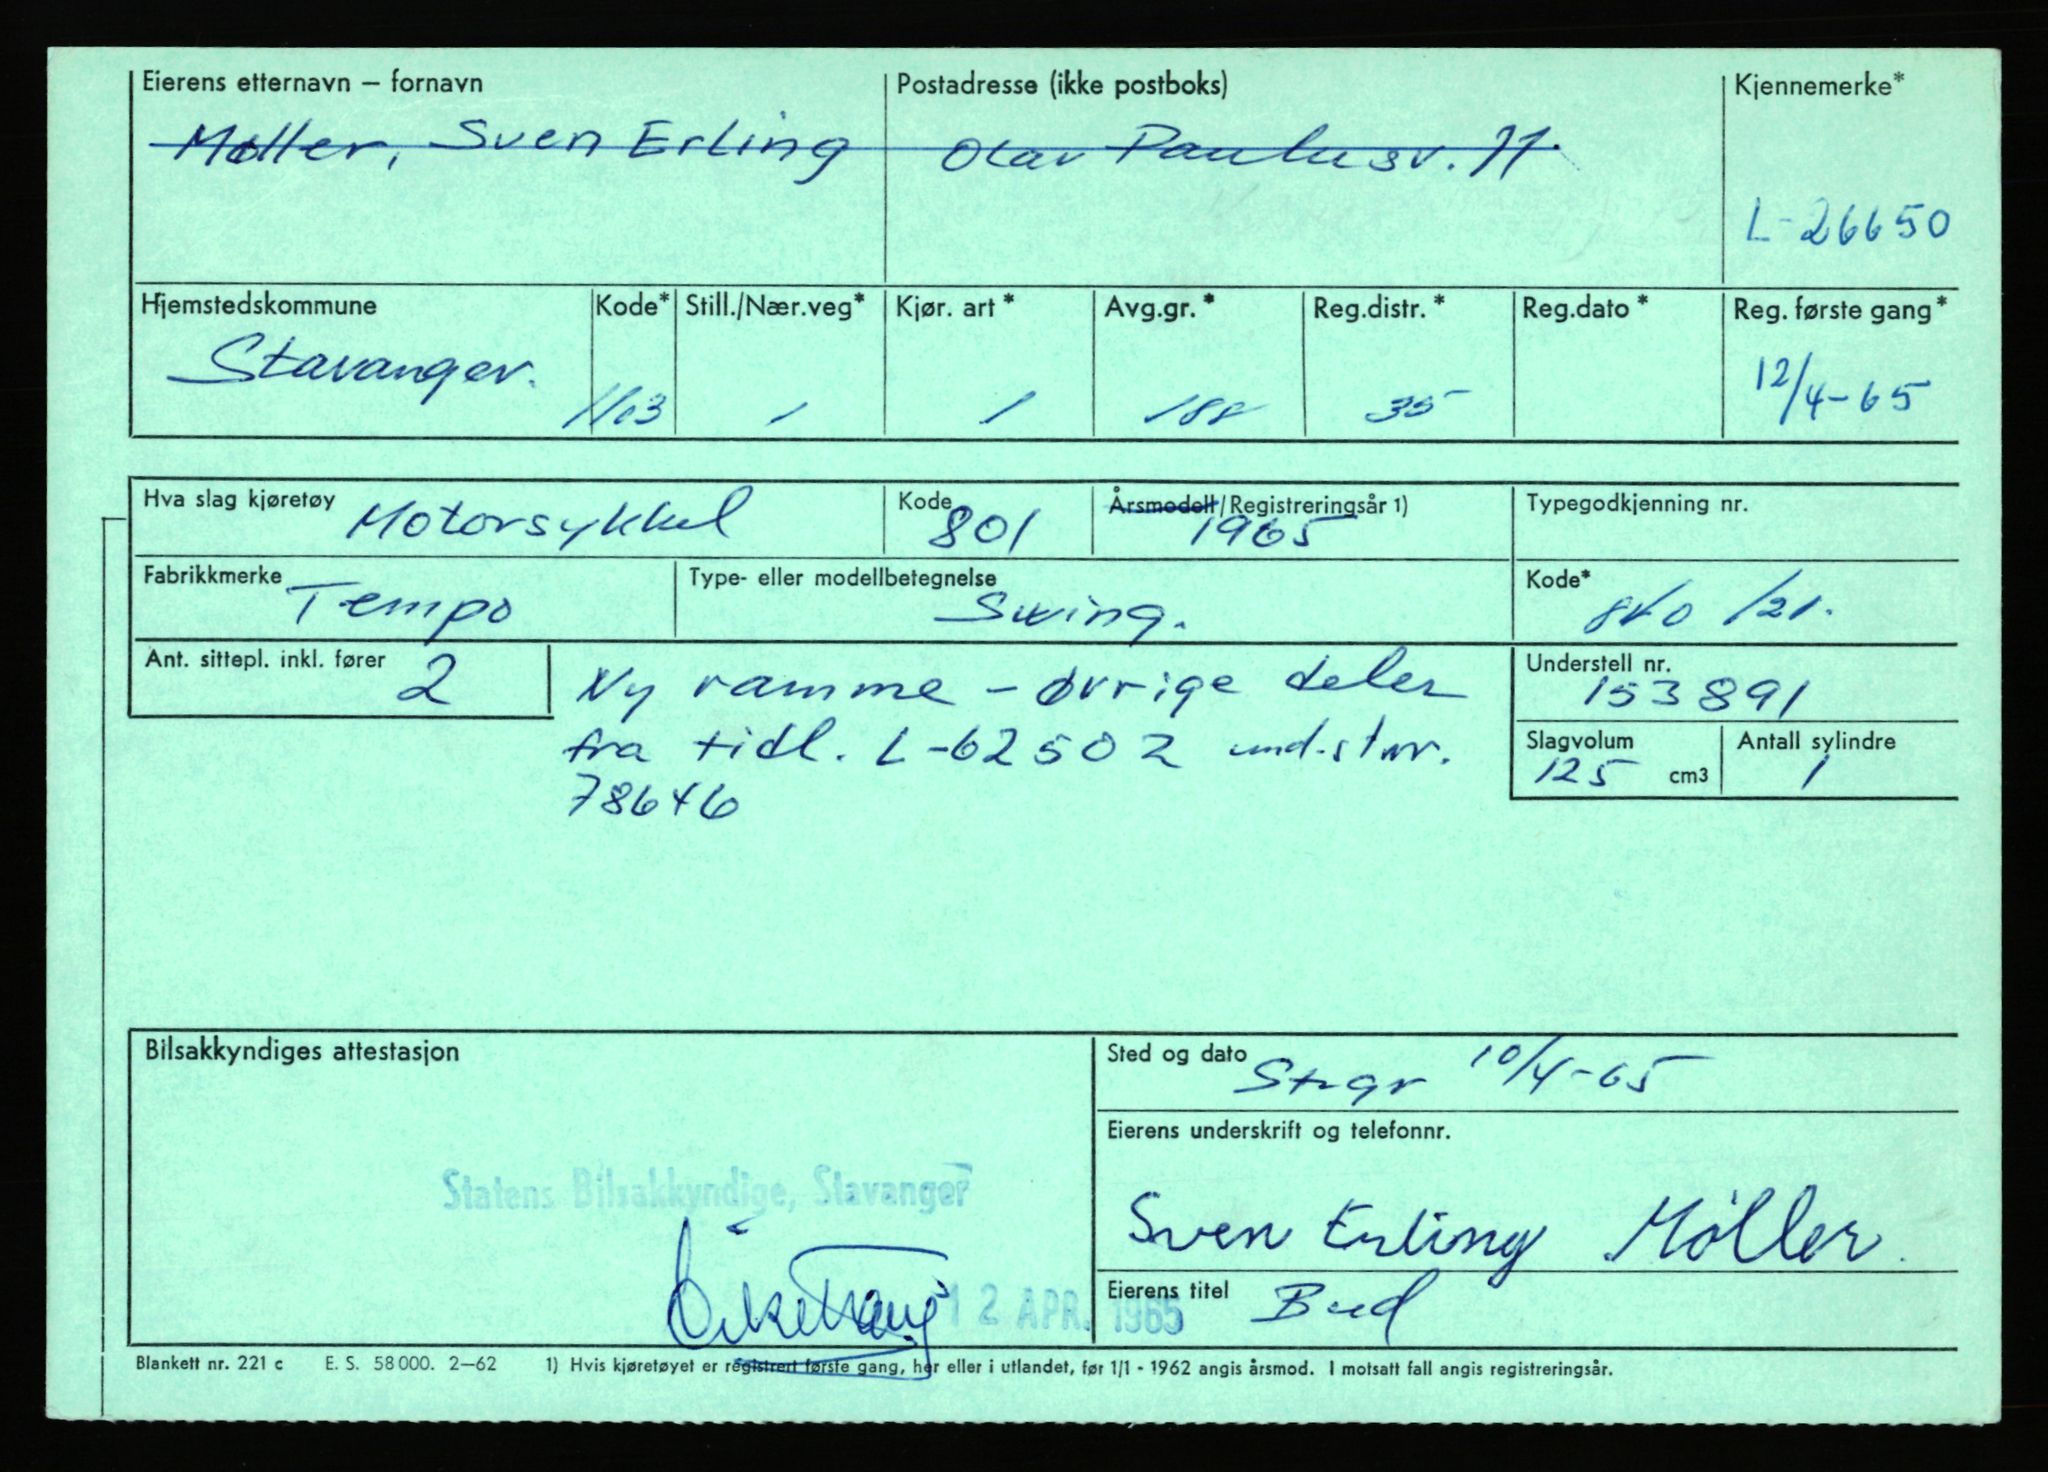 Eierens etternavn – fornavn
Postadresse (ikke postboks)
Kjennemerke*
Møller, Sven Erling
Olav Paulusv. 71.
L-26650
Hjemstedskommune
Kode*
Still./Nær.veg*
Kjør. art*
Avg.gr.*
Reg.distr.*
Reg.dato*
Reg. første gang*
Stavanger.
1103
1
1
188
35
12/4-65
Hva slag kjøretøy
Motorsykkel
Kode
801
Årsmodell/Registreringsår 1)
1965
Typegodkjenning nr.
Fabrikkmerke
Tempo
Type- eller modellbetegnelse
Swing.
Kode*
840/21.
Ant. sittepl. inkl. fører
2
Ny ramme – øvrige deler
fra tidl. L-62502 und.st.nr.
78646
Understell nr.
153891
Slagvolum
125 cm3
Antall sylindre
1
Bilsakkyndiges attestasjon
Statens Bilsakkyndige, Stavanger
12 APR. 1965
Sted og dato
Stvgr 10/4-65
Eierens underskrift og telefonnr.
Sven Erling Møller.
Eierens titel
Bud
Blankett nr. 221 c E. S. 58 000. 2–62 1) Hvis kjøretøyet er registrert første gang, her eller i utlandet, før 1/1 - 1962 angis årsmod. I motsatt fall angis registreringsår.